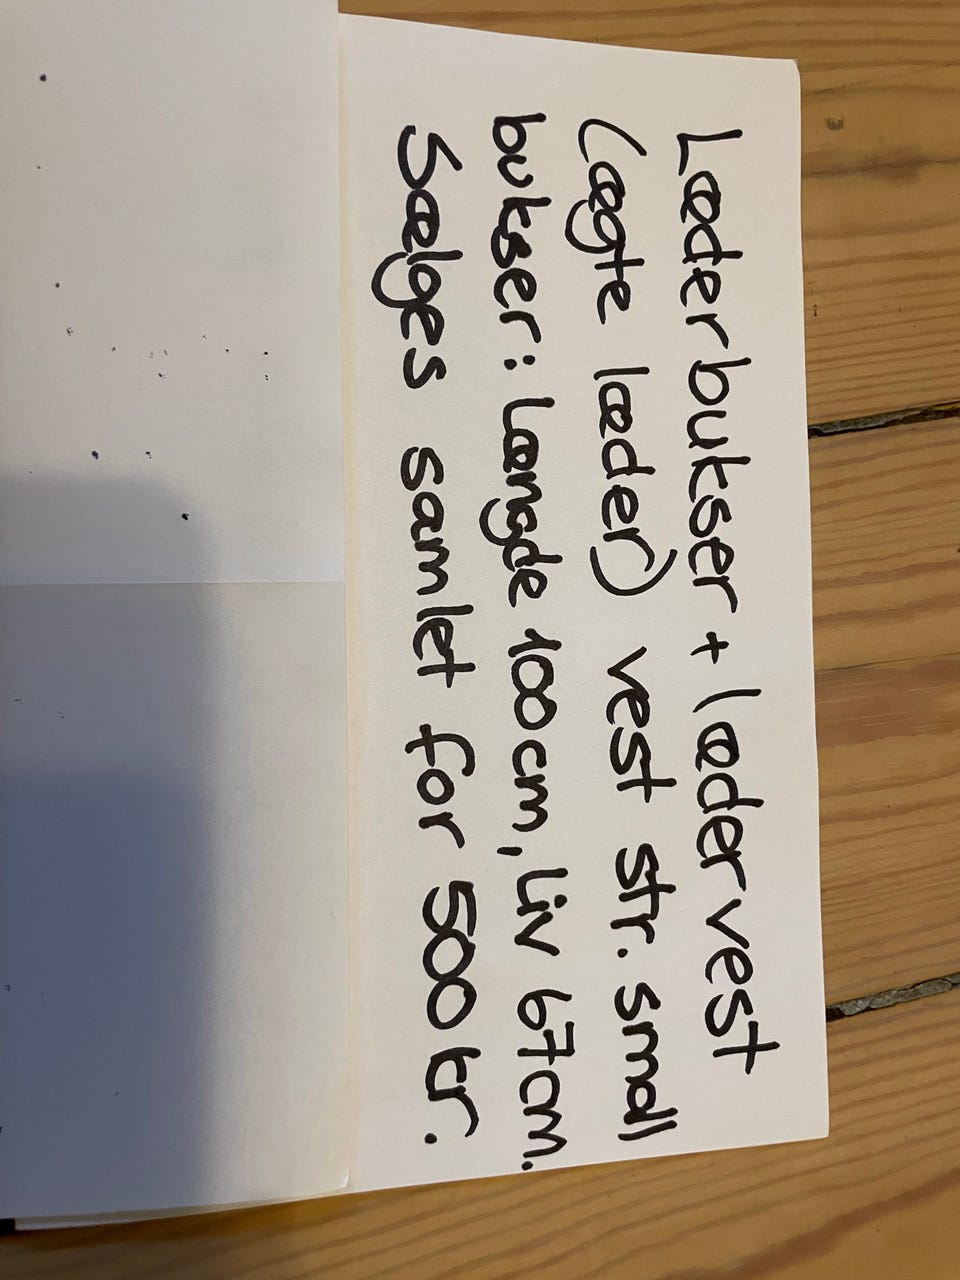 Læderbukser + lædervest
(ægte læder) vest str. small
bukser: Længde 100 cm, Liv 67 cm.
Sælges samlet for 500 kr.